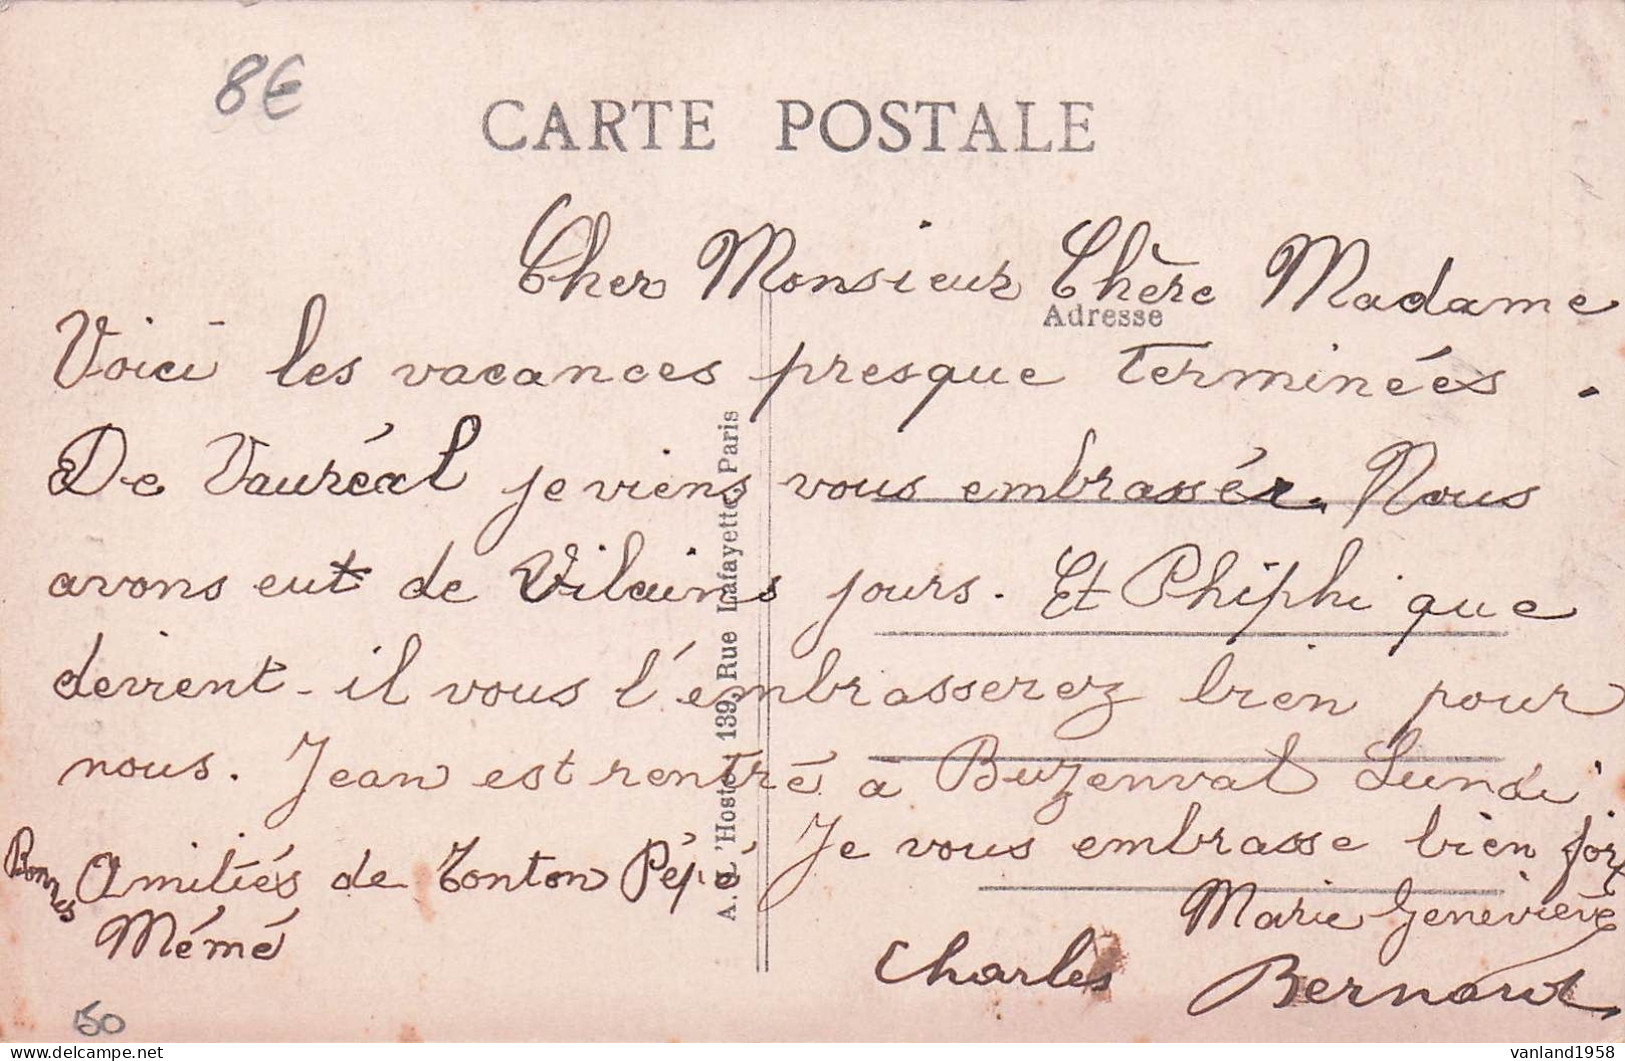 8€
CARTE POSTALE
Cher Monsieur Chère Madame
Adresse
Voici les vacances presque terminées.
De Vauréal je viens vous embrassér. Nous
avons eut de Vilains jours. Et Phiphi que
devient-il vous l'embrasserez bien pour
nous. Jean est rentré à Buzenval Lundi.
Je vous embrasse bien fort
Bonnes Amitiés de Tonton Pépé
Mémé
Marie Geneviève
Charles Bernard
A. L'Hoste, 139, Rue Lafayette, Paris
50
vanland1958